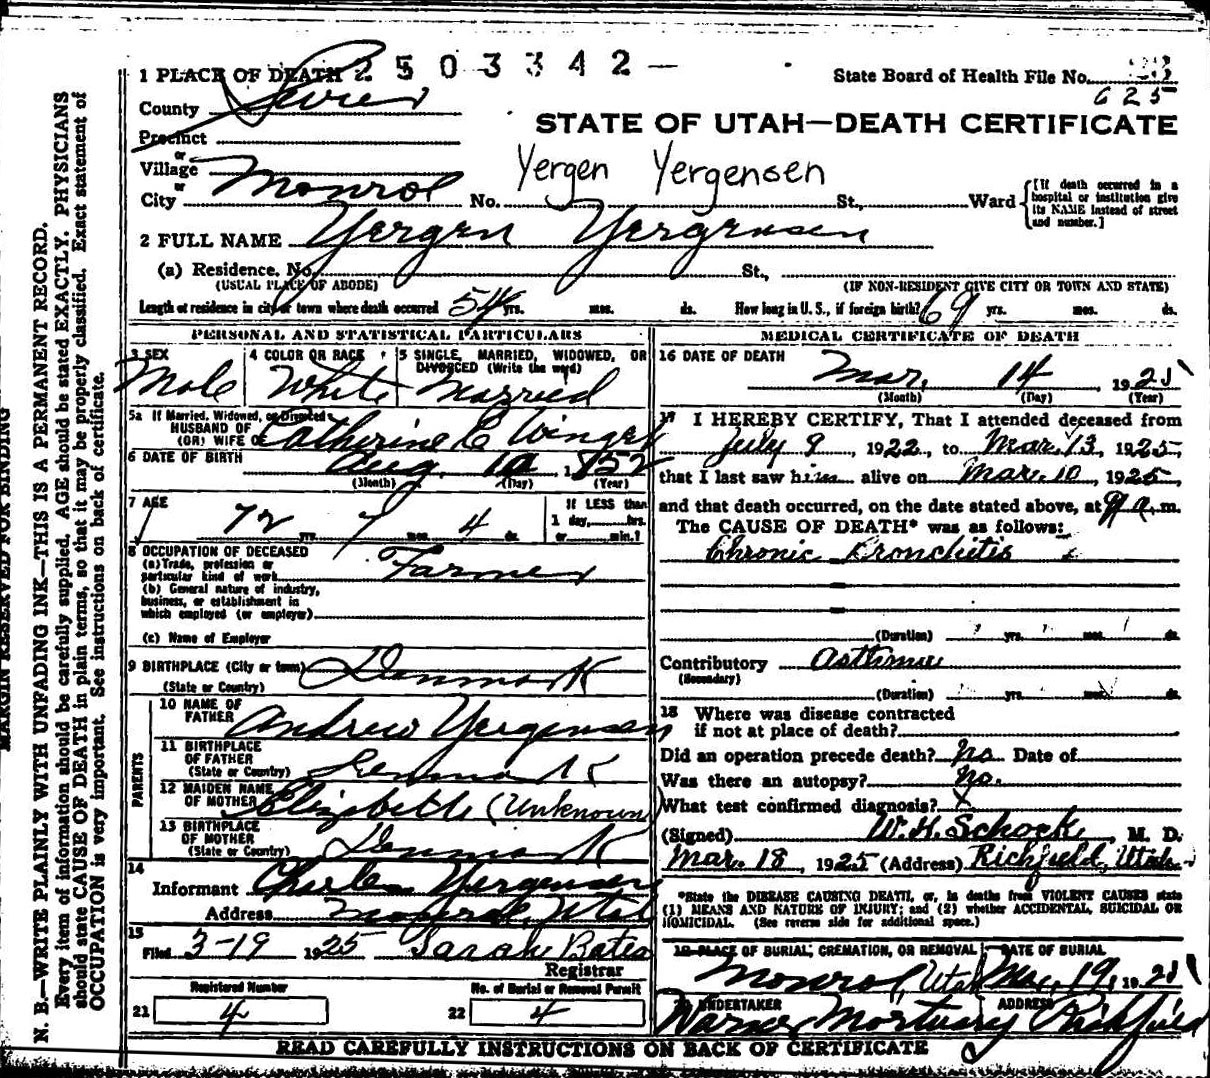 2503342-
1 PLACE OF DEATH
State Board of Health File No.
625
County Sevier
STATE OF UTAH—DEATH CERTIFICATE
Precinct
or
Village
Yergen Yergensen
or
City Monroe No. St., Ward [If death occurred in a hospital or institution give its NAME instead of street and number.]
2 FULL NAME Yergen Yergensen
(a) Residence. No. St.,
(USUAL PLACE OF ABODE) (IF NON-RESIDENT GIVE CITY OR TOWN AND STATE)
Length of residence in city or town where death occurred 54 yrs. mos. ds. How long in U. S., if foreign birth? 69 yrs. mos. ds.
PERSONAL AND STATISTICAL PARTICULARS
3 SEX
Male
4 COLOR OR RACE
White
5 SINGLE, MARRIED, WIDOWED, OR
DIVORCED (Write the word)
Married
5a If Married, Widowed, or Divorced
HUSBAND OF
(OR) WIFE OF Catherine E
6 DATE OF BIRTH Aug. 10 1852
(Month) (Day) (Year)
7 AGE
72 yrs. 7 mos. 4 ds.
If LESS than
1 day, hrs.
or min.?
8 OCCUPATION OF DECEASED
(a) Trade, profession or
particular kind of work Farmer
(b) General nature of industry,
business, or establishment in
which employed (or employer)
(c) Name of Employer
9 BIRTHPLACE (City or town) Denmark
(State or Country)
PARENTS
10 NAME OF
FATHER Andrew Yergensen
11 BIRTHPLACE
OF FATHER
(State or Country) Denmark
12 MAIDEN NAME
OF MOTHER Elizabeth (Unknown)
13 BIRTHPLACE
OF MOTHER
(State or Country) Denmark
14
Informant Charles Yergensen
Address Monroe, Utah
15
Filed 3-19 1925 Sarah Bates
Registrar
Registered Number
21 4
No. of Burial or Removal Permit
22 4
MEDICAL CERTIFICATE OF DEATH
16 DATE OF DEATH
Mar. 14 1925
(Month) (Day) (Year)
17 I HEREBY CERTIFY, That I attended deceased from
July 9, 1922, to Mar. 13, 1925,
that I last saw him alive on Mar. 10, 1925,
and that death occurred, on the date stated above, at 9 a.m.
The CAUSE OF DEATH* was as follows:
Chronic Bronchitis
(Duration) yrs. mos. ds.
Contributory Asthma
(Secondary)
(Duration) yrs. mos. ds.
18 Where was disease contracted
if not at place of death?
Did an operation precede death? no Date of
Was there an autopsy? no.
What test confirmed diagnosis? x
(Signed) W. H. Schock, M. D.
Mar. 18, 1925 (Address) Richfield, Utah
*State the DISEASE CAUSING DEATH, or, in deaths from VIOLENT CAUSES state
(1) MEANS AND NATURE OF INJURY; and (2) whether ACCIDENTAL, SUICIDAL OR
HOMICIDAL. (See reverse side for additional space.)
19 PLACE OF BURIAL, CREMATION, OR REMOVAL
Monroe, Utah
DATE OF BURIAL
Mar. 19, 1925
20 UNDERTAKER
Mortuary
ADDRESS
Richfield
READ CAREFULLY INSTRUCTIONS ON BACK OF CERTIFICATE
MARGIN RESERVED FOR BINDING
N. B.—WRITE PLAINLY WITH UNFADING INK—THIS IS A PERMANENT RECORD.
Every item of information should be carefully supplied. AGE should be stated EXACTLY. PHYSICIANS
should state CAUSE OF DEATH in plain terms, so that it may be properly classified. Exact statement of
OCCUPATION is very important. See instructions on back of certificate.